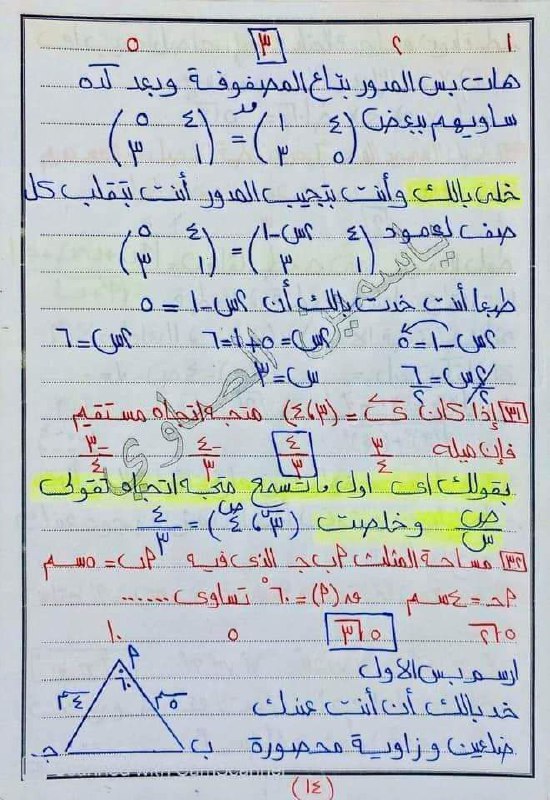 ١ ٢ ٣ ٥
هات بس المدور بتاع المصفوفة وبعد كده
ساويهم ببعض (٤ ١ / ٥ ٣)مد = (٤ ٥ / ١ ٣)
خلى بالك وأنت بتجيب المدور أنت بتقلب كل
صف لعمود (٤ ٢س-١ / ١ ٣) = (٤ ٥ / ١ ٣)
طبعا أنت خدت بالك أن ٢س-١ = ٥
٢س-١=٥ ٢س=٥+١=٦ ٢س=٦
٢س/٢=٦/٢ س=٣
٣١ إذا كان ى = (٣،٤) متجه اتجاه مستقيم
فإن ميله ٣/٤ ٤/٣ -٤/٣ -٣/٤
بقولك اى اول ما تسمع متجه اتجاه تقولى
ص/س وخلصت (٣،٤) س ص = ٤/٣
٣٢ مساحة المثلث ٩ ب جـ الذى فيه ٩ب = ٥سم
٩جـ = ٤سم ق(٩) = ٦٠° تساوى ......
٥√٢ ٥√٣ ٥ ١٠
ارسم بس الاول
خد بالك أن أنت عندك
ضلعين وزاوية محصورة
٩
٦٠°
٤سم ٥سم
جـ ب
(١٤)
ياسمين الصاوى
Scanned with CamScanner